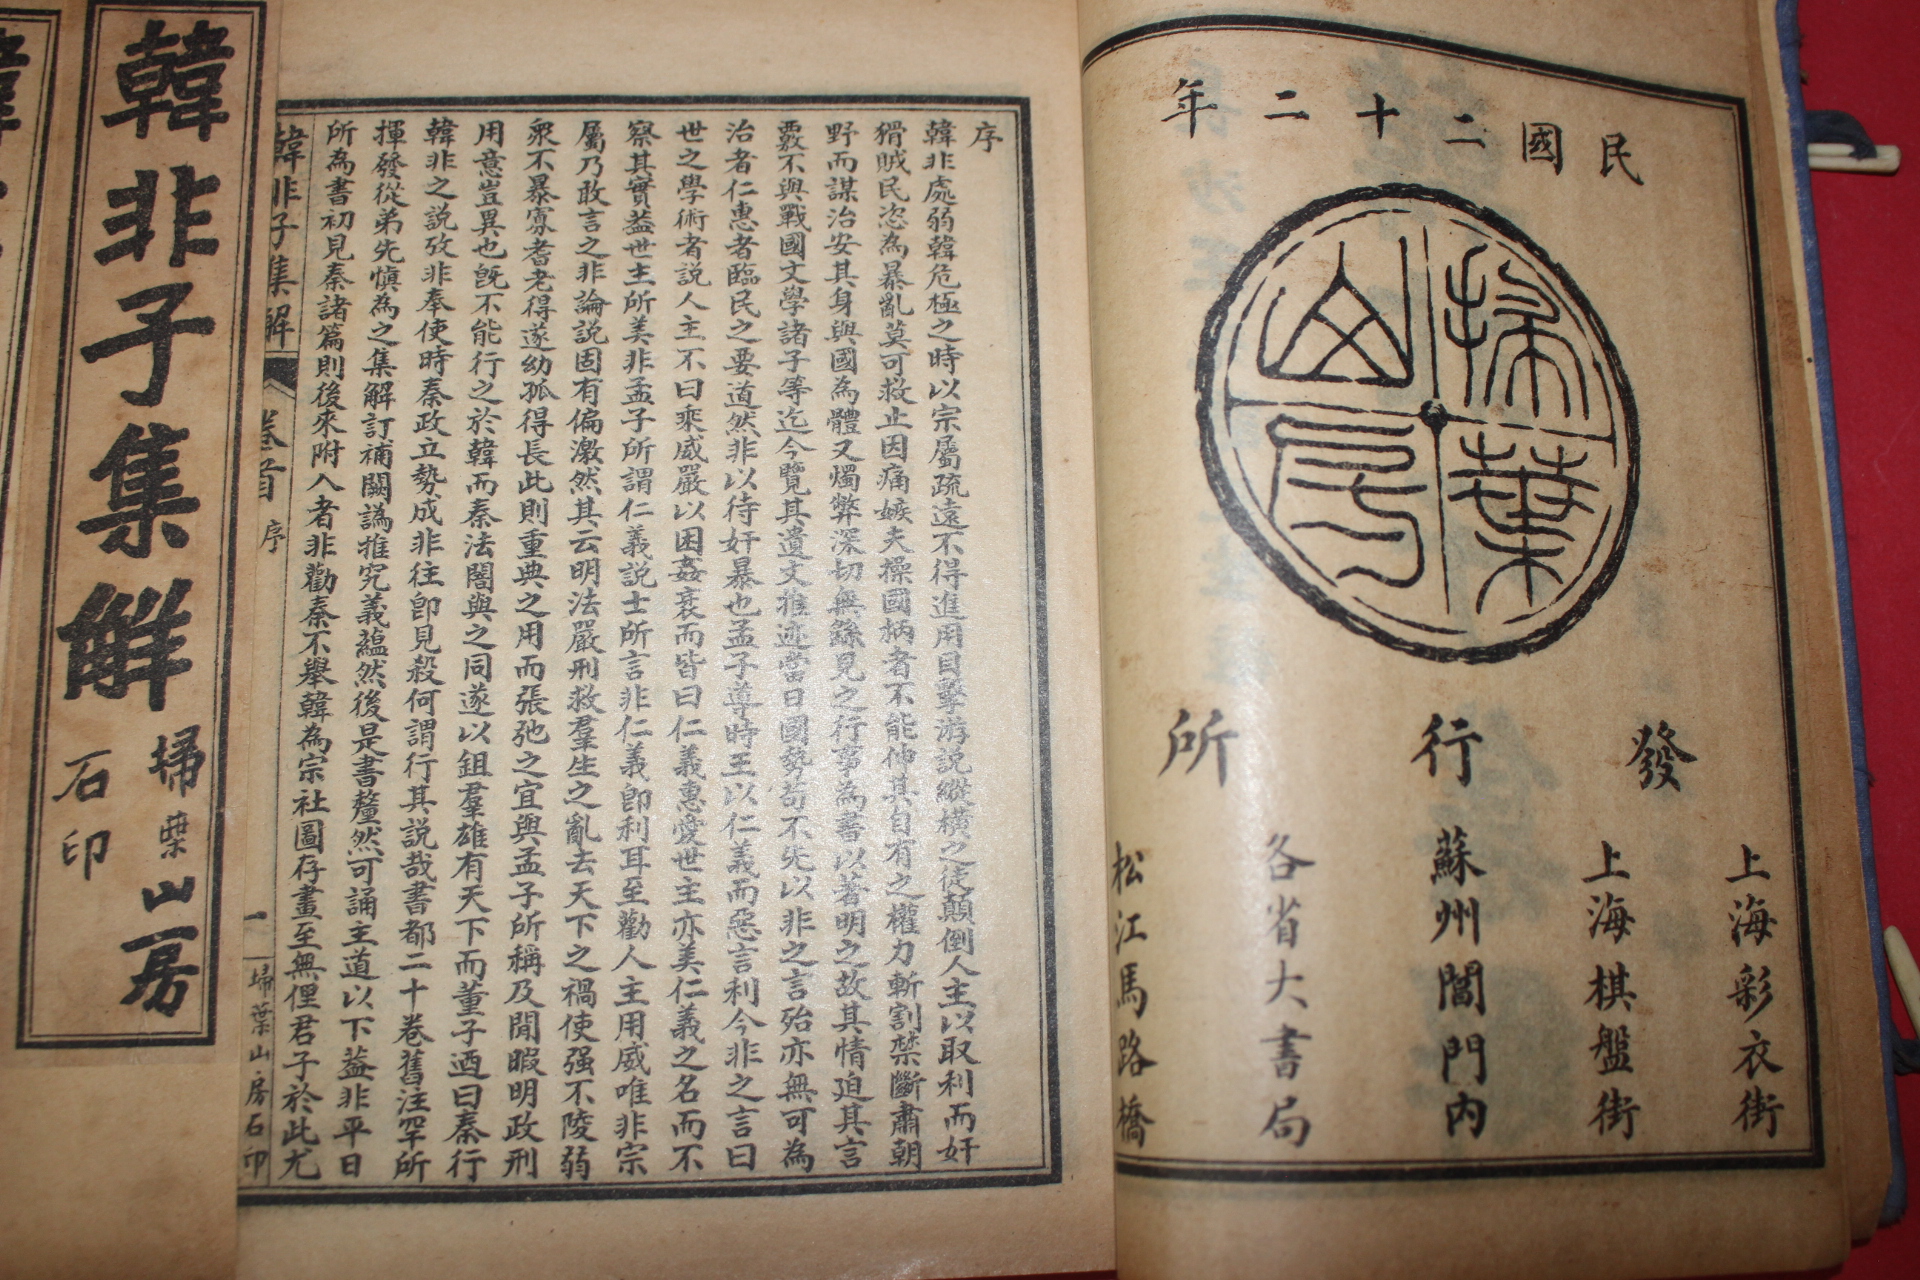 民國二十二年
掃葉山房
發行所
上海彩衣街
上海棋盤街
蘇州閶門內
各省大書局
松江馬路橋
序
韓非處弱韓危極之時以宗屬疏遠不得進用目擊游説縱橫之徒顛倒人主以取利而奸
猾賊民恣為暴亂莫可救止因痛嫉夫操國柄者不能伸其自有之權力斬割禁斷肅朝
野而謀治安其身與國為體又燭弊深切無繇見之行事為書以著明之故其情迫其言
覈不與戰國文學諸子等迄今覽其遺文推迹當日國勢苟不先以非之言殆亦無可為
治者仁惠者臨民之要道然非以待奸暴也孟子導時王以仁義而惡言利今非之言曰
世之學術者説人主不曰乘威嚴以困姦衺而皆曰仁義惠愛世主亦美仁義之名而不
察其實葢世主所美非孟子所謂仁義説士所言非仁義卽利耳至勸人主用威唯非宗
屬乃敢言之非論説固有偏激然其云明法嚴刑救羣生之亂去天下之禍使强不陵弱
衆不暴寡耆老得遂幼孤得長此則重典之用而張弛之宜與孟子所稱及閒暇明政刑
用意豈異也旣不能行之於韓而秦法闇與之同遂以鉏羣雄有天下而董子迺曰秦行
韓非之説攷非奉使時秦政立勢成非往卽見殺何謂行其説哉書都二十卷舊注罕所
揮發從弟先慎為之集解訂補闕譌推究義蘊然後是書釐然可誦主道以下葢非平日
所為書初見秦諸篇則後來附入者非勸秦不舉韓為宗社圖存畫至無俚君子於此尤
韓非子集解 卷首 序 一 掃葉山房石印
韓非子集解
掃葉山房
石印